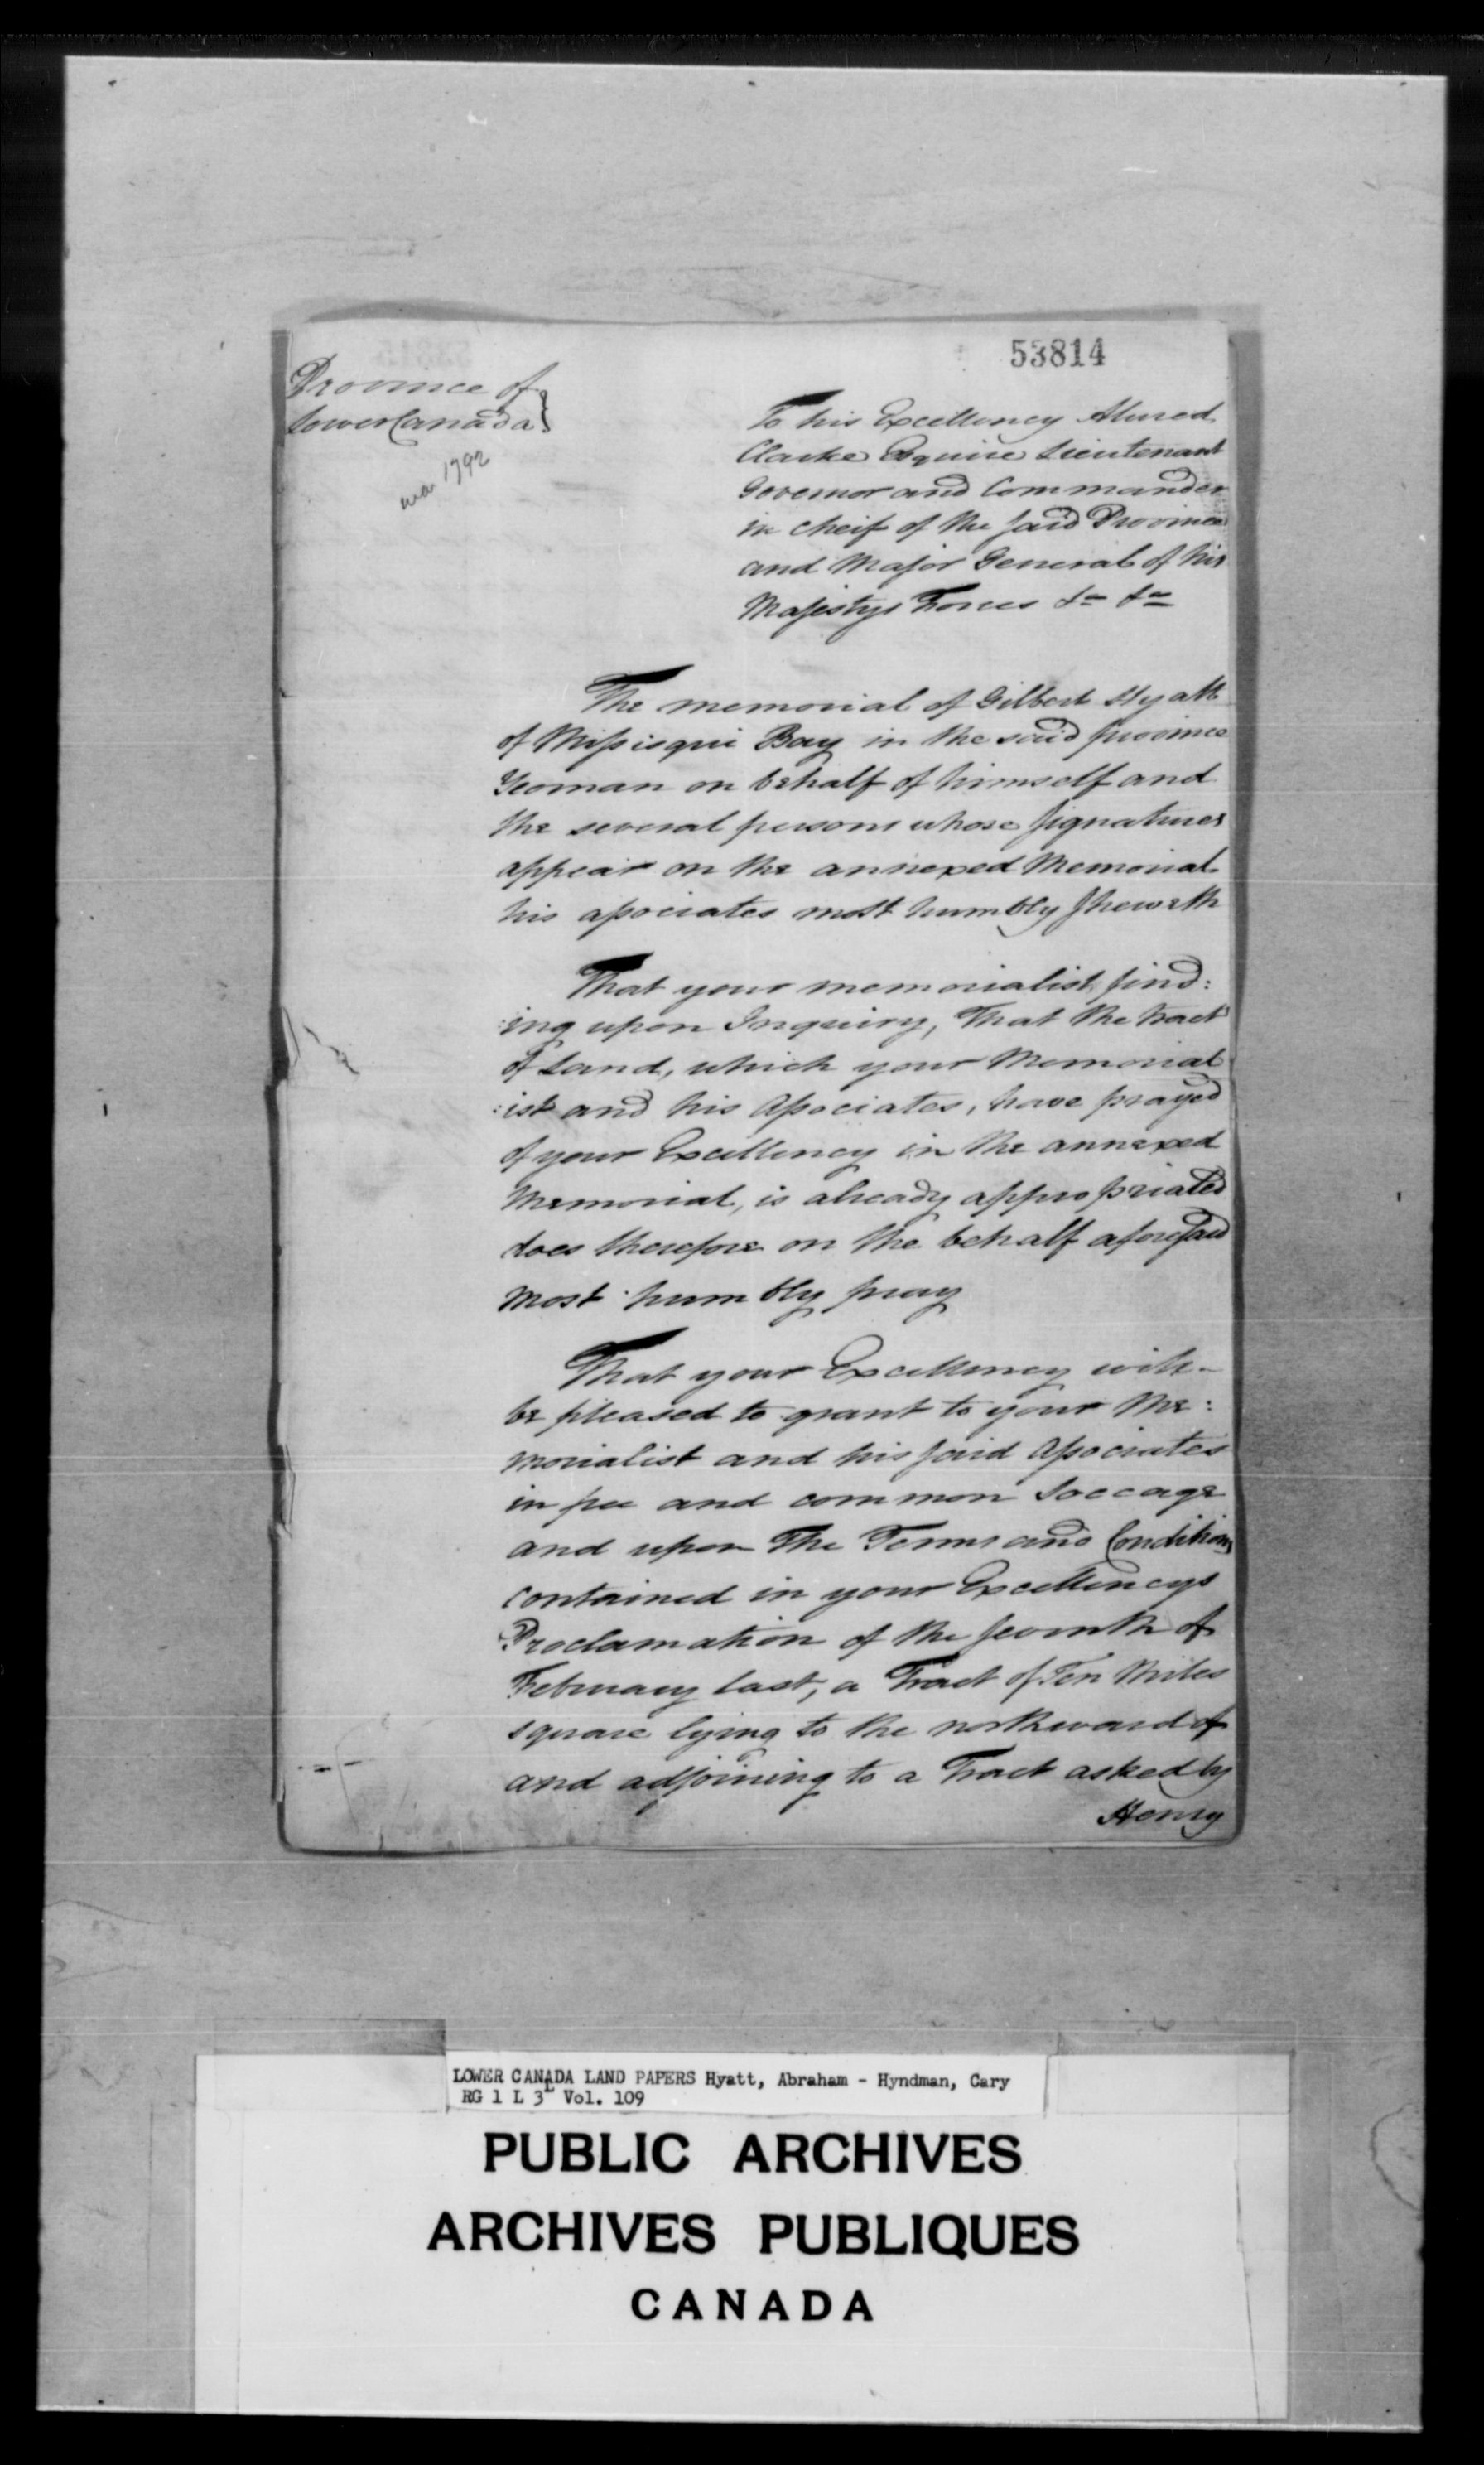 53814
Province of
Lower Canada }
1792
To his Excellency Alured
Clarke Esquire Lieutenant
Governor and Commander
in Cheif of the said Province
and Major General of his
Majestys Forces &c &c
The memorial of Gilbert Hyatt
of Missisqui Bay in the said province
Yeoman on behalf of himself and
the several persons whose signatures
appear on the annexed Memorial
his associates most humbly sheweth
That your memorialist find:
:ing upon Inquiry, That the tract
of Land, which your Memorial
:ist and his Associates, have prayed
of your Excellency in the annexed
Memorial, is already appropriated
does therefore on the behalf aforesaid
most humbly pray
That your Excellency will
be pleased to grant to your Me:
morialist and his said Associates
in free and common Soccage
and upon The Terms and Conditions
contained in your Excellencys
Proclamation of the seventh of
February last, a Tract of Ten Miles
square lying to the northward of
and adjoining to a Tract asked by
Henry
LOWER CANADA LAND PAPERS Hyatt, Abraham - Hyndman, Cary
RG 1 L 3L Vol. 109
PUBLIC ARCHIVES
ARCHIVES PUBLIQUES
CANADA